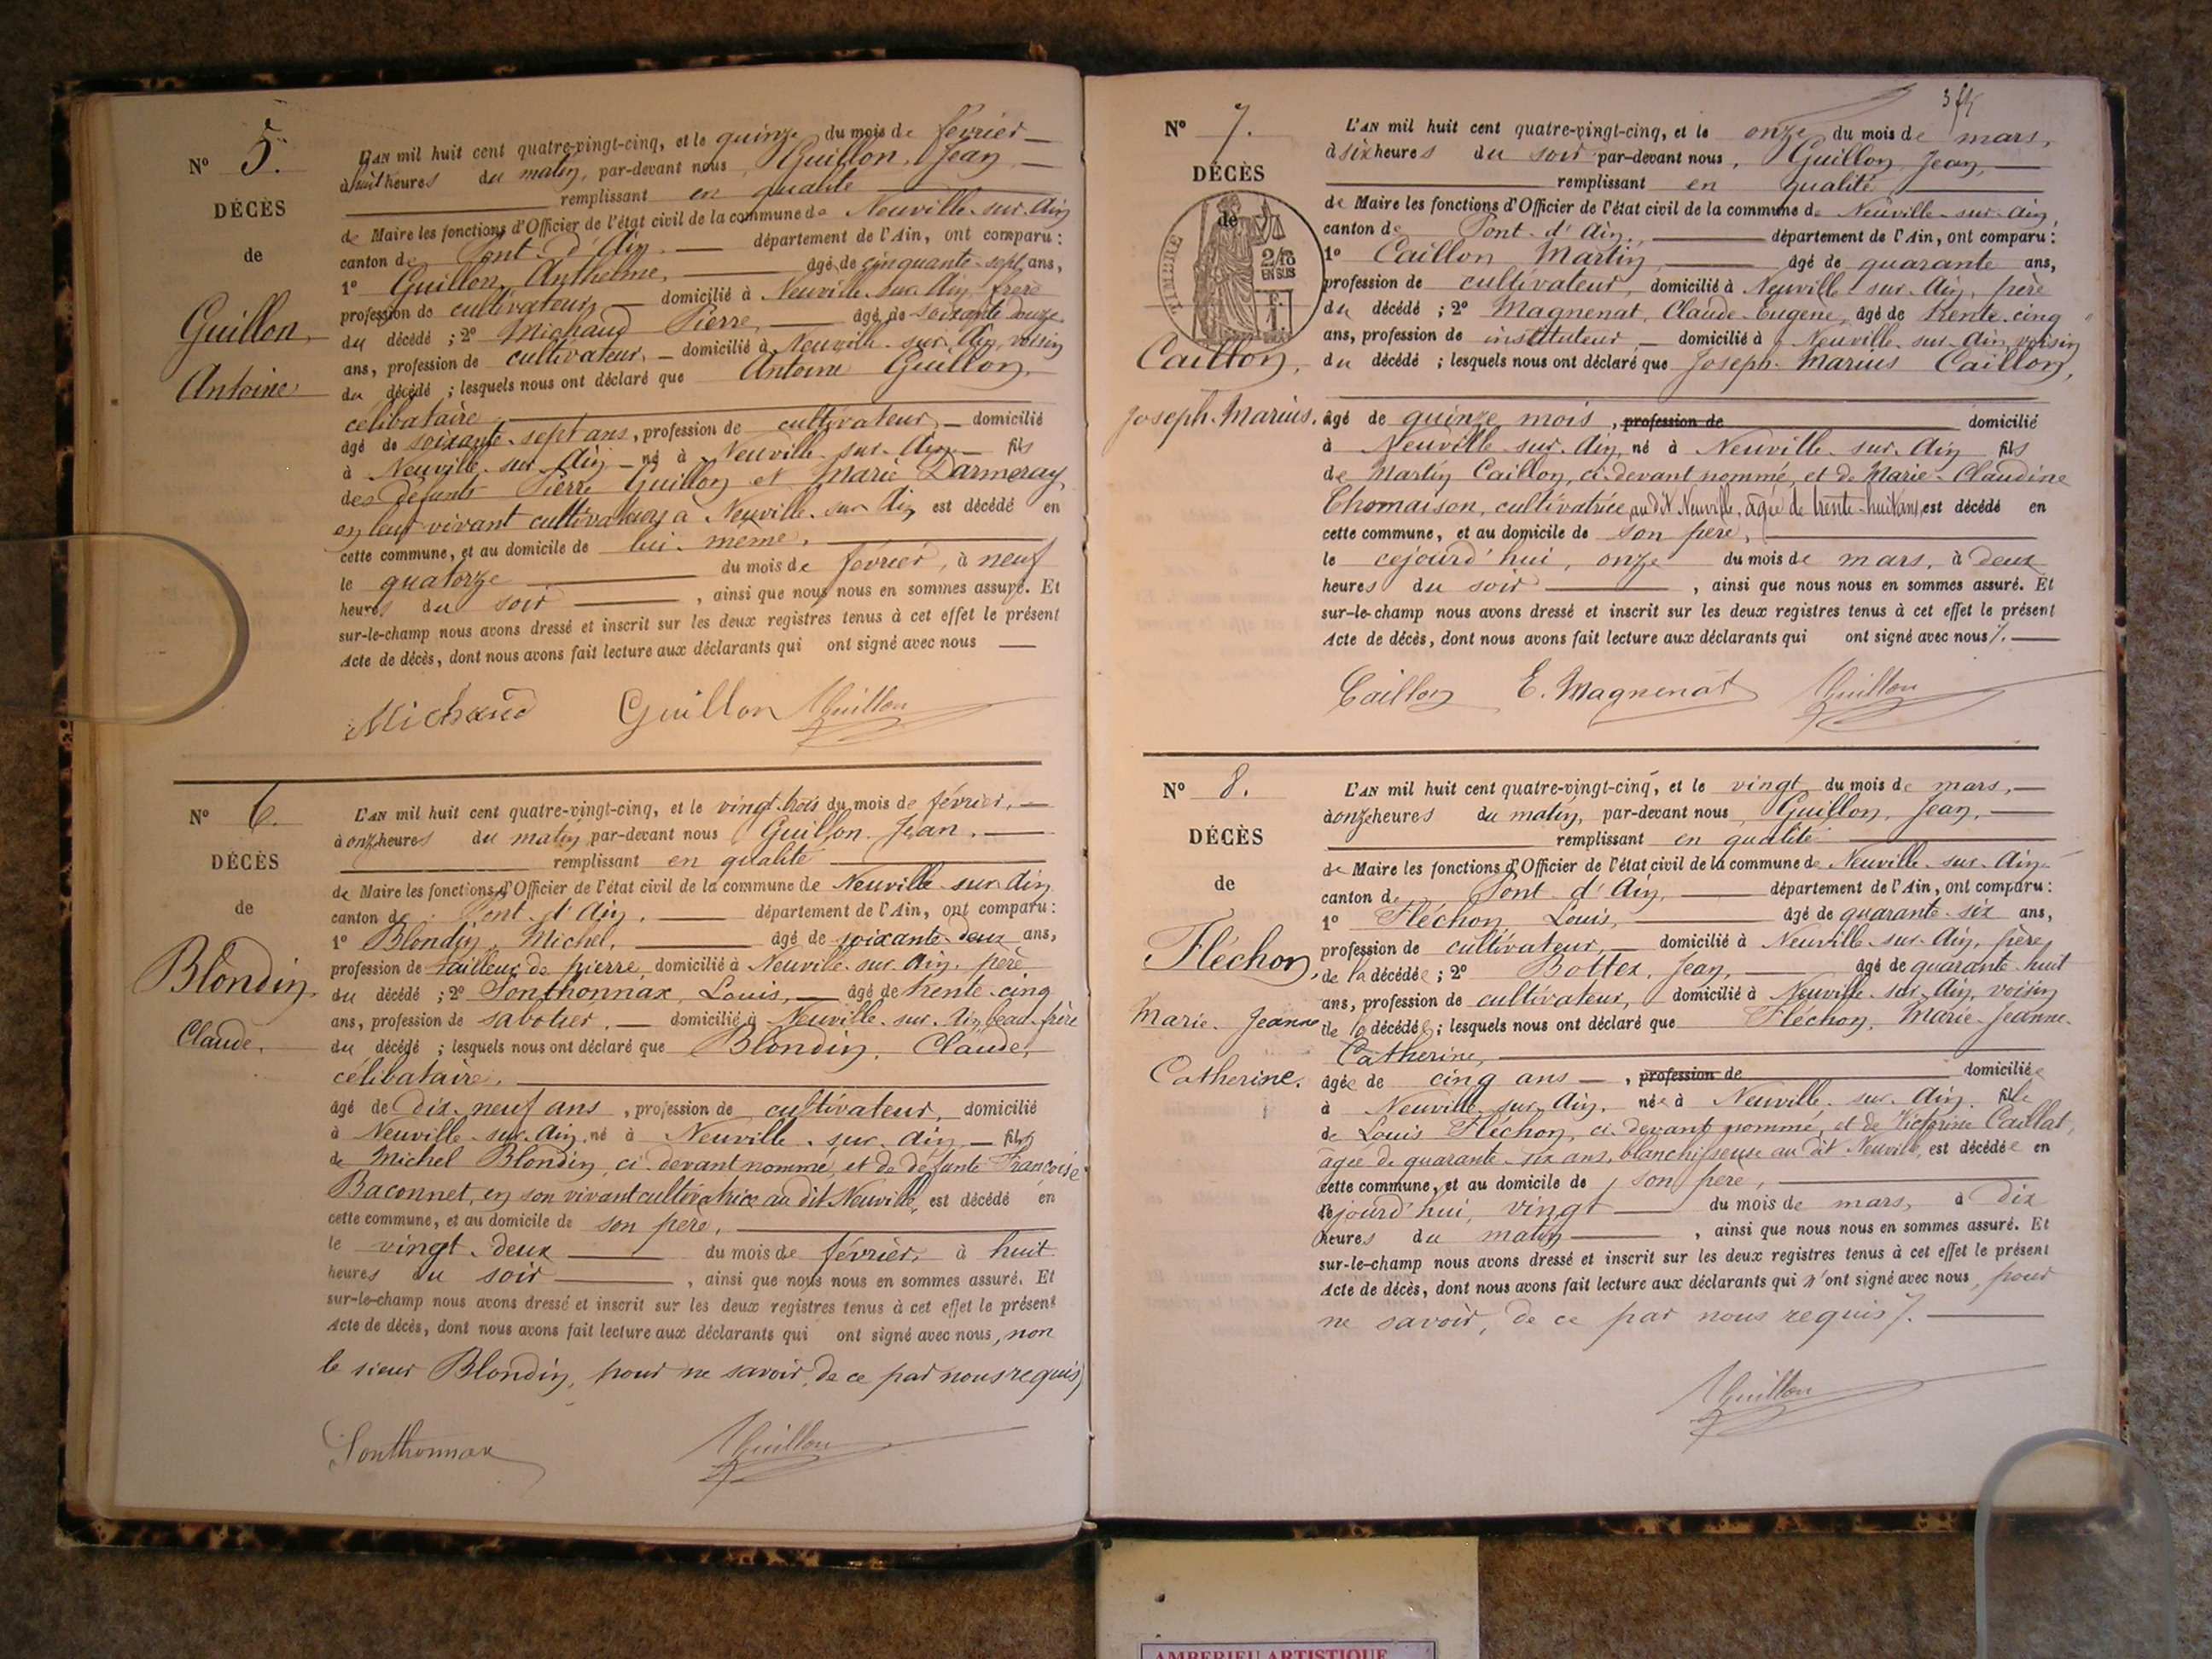 N° 5.
DÉCÈS
de
Guillon,
Antoine
L'AN mil huit cent quatre-vingt-cinq, et le quinze du mois de février
à huit heures du matin, par-devant nous, Guillon, Jean,
remplissant en qualité
de Maire les fonctions d'Officier de l'état civil de la commune de Neuville-sur-Ain
canton de Pont-d'Ain département de l'Ain, ont comparu :
1° Guillon, Anthelme, âgé de cinquante-sept ans,
profession de cultivateur, domicilié à Neuville-sur-Ain, frère
du décédé ; 2° Michaud Pierre, âgé de soixante-douze
ans, profession de cultivateur, domicilié à Neuville-sur-Ain, voisin
du décédé ; lesquels nous ont déclaré que Antoine Guillon,
célibataire
âgé de soixante-sept ans, profession de cultivateur, domicilié
à Neuville-sur-Ain né à Neuville-sur-Ain fils
des défunts Pierre Guillon et Marie Darmeray,
en leur vivant cultivateurs à Neuville-sur-Ain est décédé en
cette commune, et au domicile de lui-même,
le quatorze du mois de février, à neuf
heures du soir, ainsi que nous nous en sommes assuré. Et
sur-le-champ nous avons dressé et inscrit sur les deux registres tenus à cet effet le présent
Acte de décès, dont nous avons fait lecture aux déclarants qui ont signé avec nous
Michaud Guillon Guillon
N° 6.
DÉCÈS
de
Blondin,
Claude.
L'AN mil huit cent quatre-vingt-cinq, et le vingt-trois du mois de février,
à onze heures du matin, par-devant nous Guillon Jean,
remplissant en qualité
de Maire les fonctions d'Officier de l'état civil de la commune de Neuville-sur-Ain
canton de Pont-d'Ain, département de l'Ain, ont comparu :
1° Blondin, Michel, âgé de soixante-deux ans,
profession de tailleur de pierre, domicilié à Neuville-sur-Ain, père
du décédé ; 2° Sonthonnax, Louis, âgé de trente-cinq
ans, profession de sabotier, domicilié à Neuville-sur-Ain, beau-frère
du décédé ; lesquels nous ont déclaré que Blondin, Claude,
célibataire,
âgé de dix-neuf ans, profession de cultivateur, domicilié
à Neuville-sur-Ain, né à Neuville-sur-Ain fils
de Michel Blondin, ci-devant nommé, et de défunte Françoise
Baconnet, en son vivant cultivatrice au dit Neuville, est décédé en
cette commune, et au domicile de son père,
le vingt-deux du mois de février, à huit
heures du soir, ainsi que nous nous en sommes assuré. Et
sur-le-champ nous avons dressé et inscrit sur les deux registres tenus à cet effet le présent
Acte de décès, dont nous avons fait lecture aux déclarants qui ont signé avec nous, non
le sieur Blondin, pour ne savoir, de ce par nous requis
Sonthonnax Guillon
N° 7.
DÉCÈS
de
TIMBRE
2/10
EN SUS
Caillon,
Joseph-Marius.
L'AN mil huit cent quatre-vingt-cinq, et le onze du mois de mars,
à six heures du soir par-devant nous, Guillon, Jean,
remplissant en qualité
de Maire les fonctions d'Officier de l'état civil de la commune de Neuville-sur-Ain,
canton de Pont-d'Ain, département de l'Ain, ont comparu :
1° Caillon, Martin, âgé de quarante ans,
profession de cultivateur, domicilié à Neuville-sur-Ain, père
du décédé ; 2° Magnenat, Claude-Eugène, âgé de trente-cinq
ans, profession de instituteur, domicilié à Neuville-sur-Ain, voisin
du décédé ; lesquels nous ont déclaré que Joseph-Marius Caillon,
âgé de quinze mois, profession de domicilié
à Neuville-sur-Ain, né à Neuville-sur-Ain fils
de Martin Caillon, ci-devant nommé, et de Marie-Claudine
Thomasson, cultivatrice, au dit Neuville, âgée de trente-huit ans, est décédé en
cette commune, et au domicile de son père,
le cejourd'hui, onze du mois de mars, à deux
heures du soir, ainsi que nous nous en sommes assuré. Et
sur-le-champ nous avons dressé et inscrit sur les deux registres tenus à cet effet le présent
Acte de décès, dont nous avons fait lecture aux déclarants qui ont signé avec nous.
Caillon E. Magnenat Guillon
N° 8.
DÉCÈS
de
Fléchon,
Marie-Jeanne
Catherine.
L'AN mil huit cent quatre-vingt-cinq, et le vingt du mois de mars,
à onze heures du matin, par-devant nous, Guillon, Jean,
remplissant en qualité
de Maire les fonctions d'Officier de l'état civil de la commune de Neuville-sur-Ain
canton de Pont-d'Ain, département de l'Ain, ont comparu :
1° Fléchon, Louis, âgé de quarante-six ans,
profession de cultivateur, domicilié à Neuville-sur-Ain, père
de la décédée ; 2° Bottex, Jean, âgé de quarante-huit
ans, profession de cultivateur, domicilié à Neuville-sur-Ain, voisin
de la décédée ; lesquels nous ont déclaré que Fléchon, Marie-Jeanne-
Catherine,
âgée de cinq ans, profession de domiciliée
à Neuville-sur-Ain, née à Neuville-sur-Ain, fille
de Louis Fléchon, ci-devant nommé, et de Victorine Caillat,
âgée de quarante-six ans, blanchisseuse au dit Neuville, est décédée en
cette commune, et au domicile de son père,
cejourd'hui, vingt du mois de mars, à dix
heures du matin, ainsi que nous nous en sommes assuré. Et
sur-le-champ nous avons dressé et inscrit sur les deux registres tenus à cet effet le présent
Acte de décès, dont nous avons fait lecture aux déclarants qui n'ont signé avec nous, pour
ne savoir, de ce par nous requis.
Guillon
AMBERIEU ARTISTIQUE